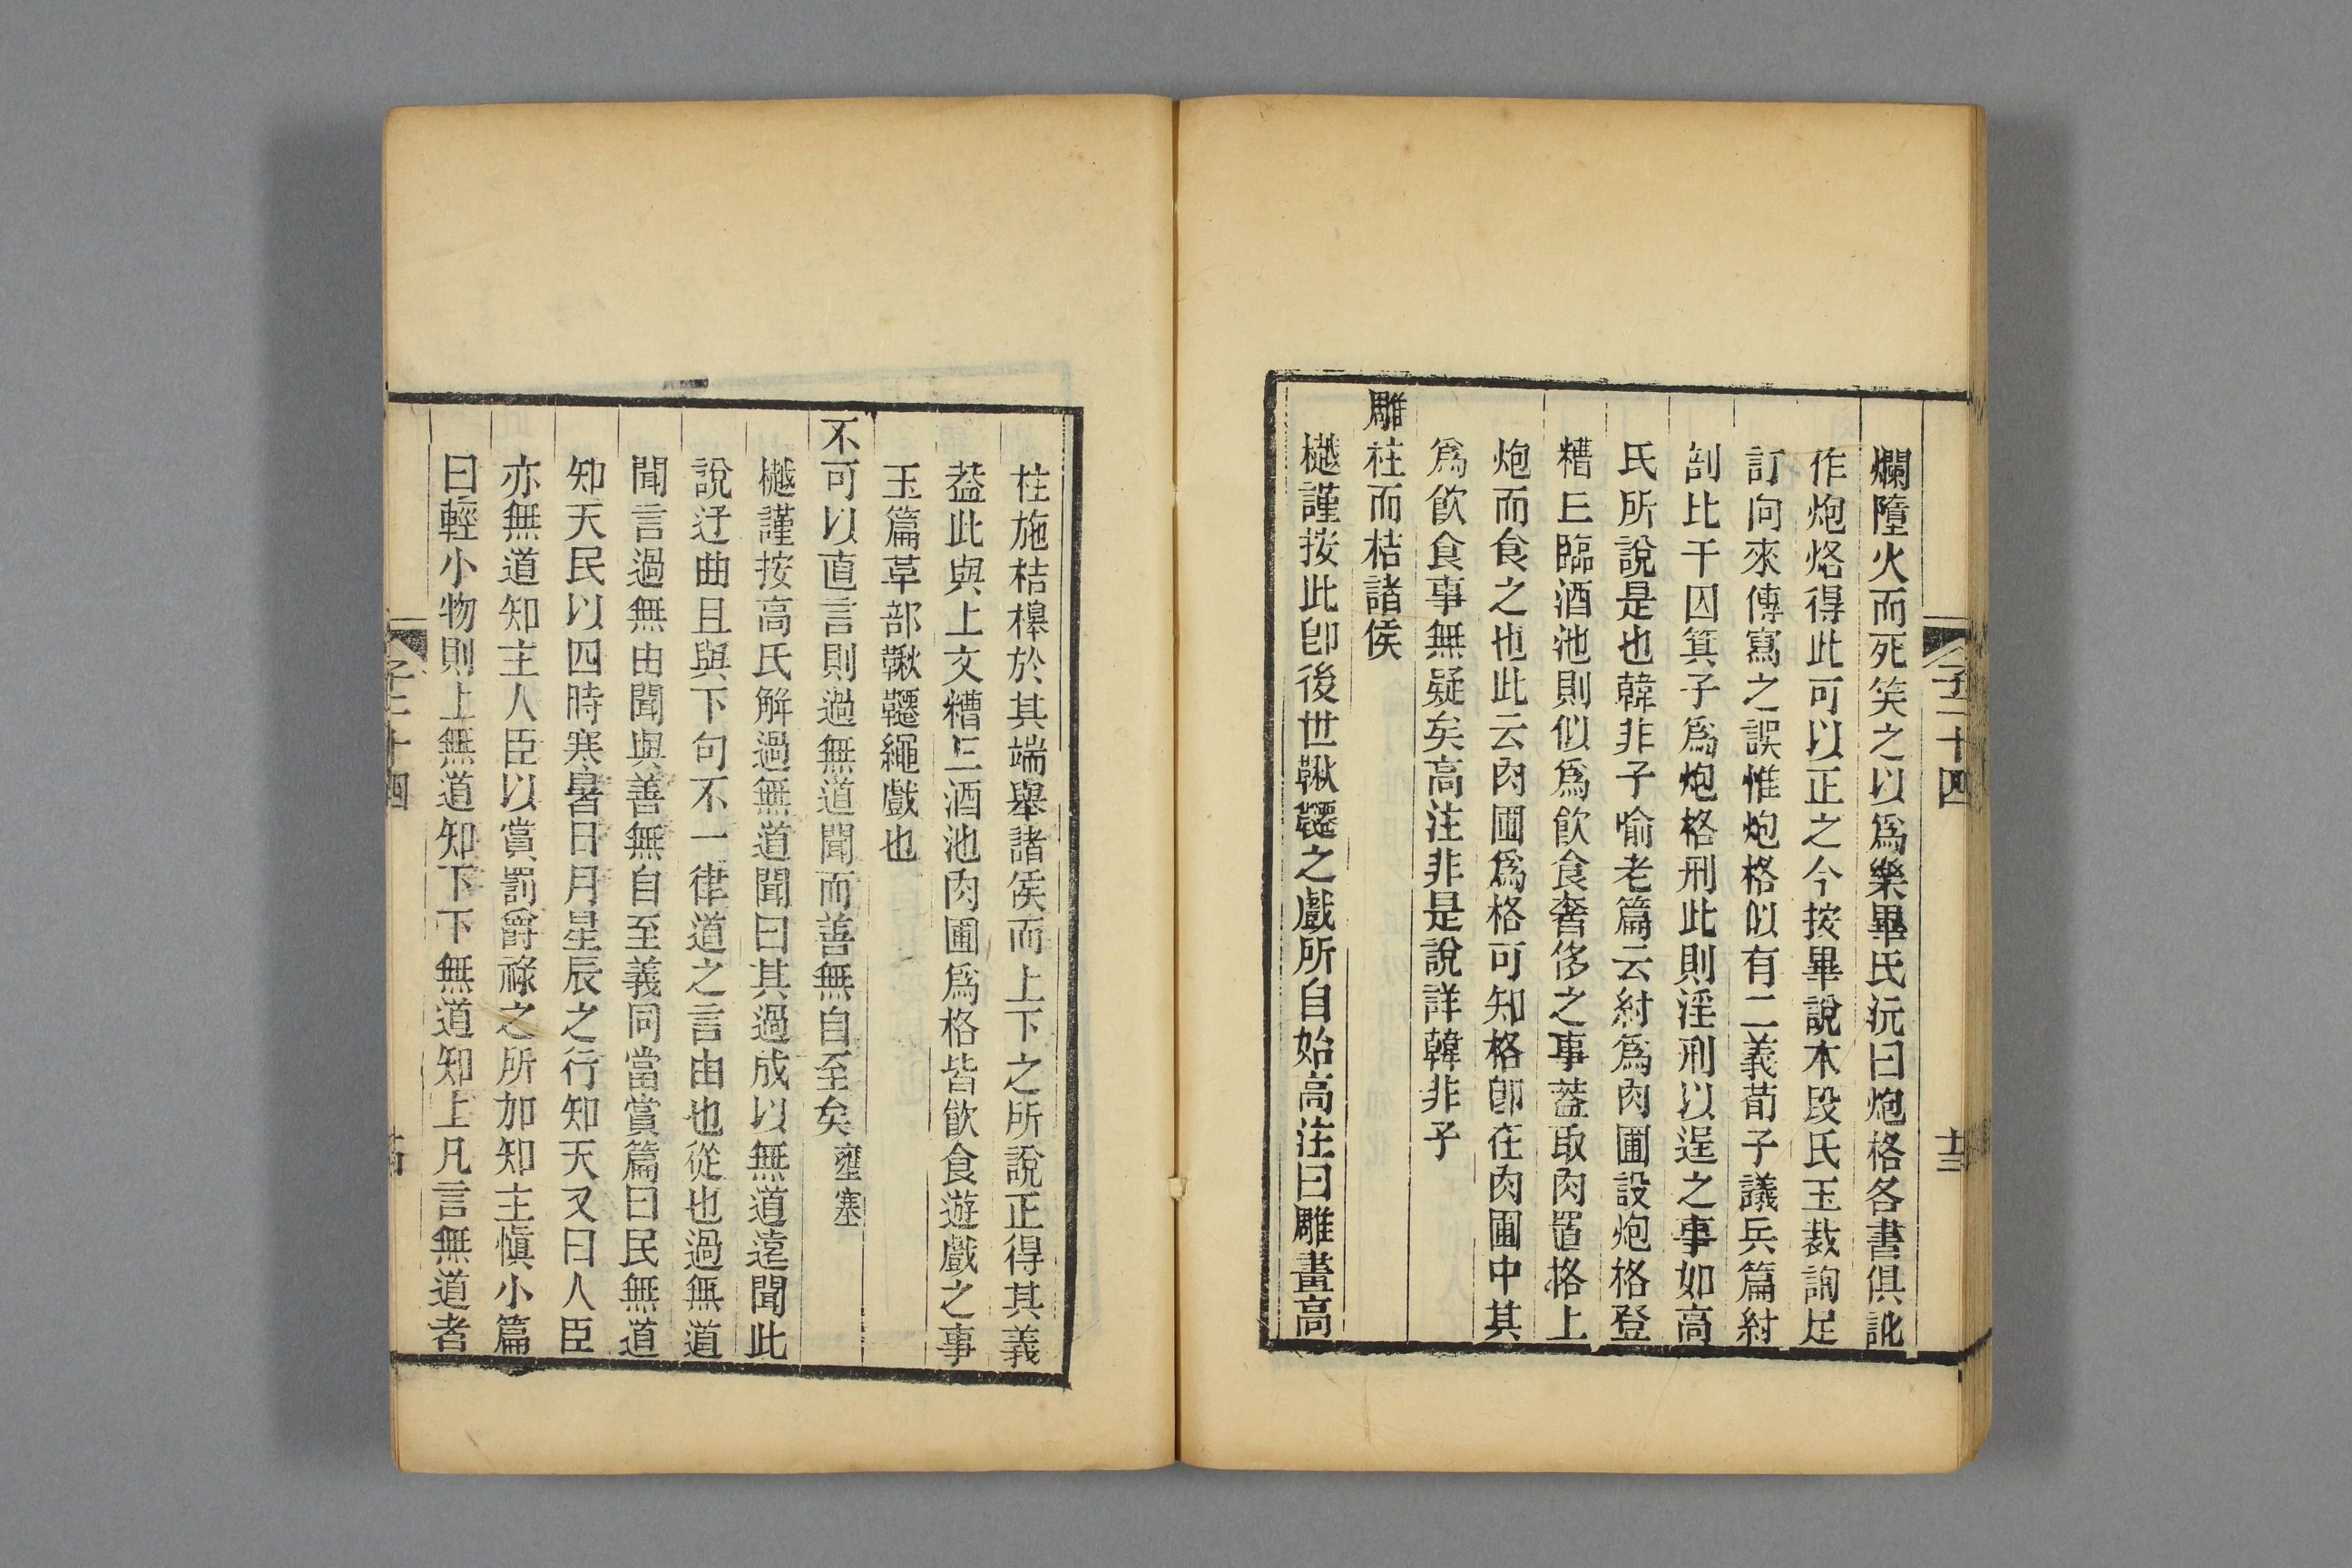 子二十四
廿三
爛墮火而死笑之以爲樂畢氏沅曰炮格各書俱訛
作炮烙得此可以正之今按畢說本段氏玉裁詢足
訂向來傳寫之誤惟炮格似有二義荀子議兵篇紂
剖比干囚箕子爲炮格刑此則淫刑以逞之事如高
氏所說是也韓非子喻老篇云紂爲肉圃設炮格登
糟𠀉臨酒池則似爲飮食奢侈之事葢取肉置格上
炮而食之也此云肉圃爲格可知格卽在肉圃中其
爲飮食事無疑矣高注非是說詳韓非子
雕柱而桔諸侯
樾謹按此卽後世鞦韆之戲所自始高注曰雕畫高
柱施桔槔於其端舉諸侯而上下之所說正得其義
葢此與上文糟𠀉酒池肉圃爲格皆飮食遊戲之事
玉篇革部鞦韆繩戲也
不可以直言則過無道聞而善無自至矣 壅塞
樾謹按高氏解過無道聞曰其過成以無道遠聞此
說迂曲且與下句不一律道之言由也從也過無道
聞言過無由聞與善無自至義同當賞篇曰民無道
知天民以四時寒暑日月星辰之行知天又曰人臣
亦無道知主人臣以賞罰爵祿之所加知主愼小篇
曰輕小物則上無道知下下無道知上凡言無道者
子二十四